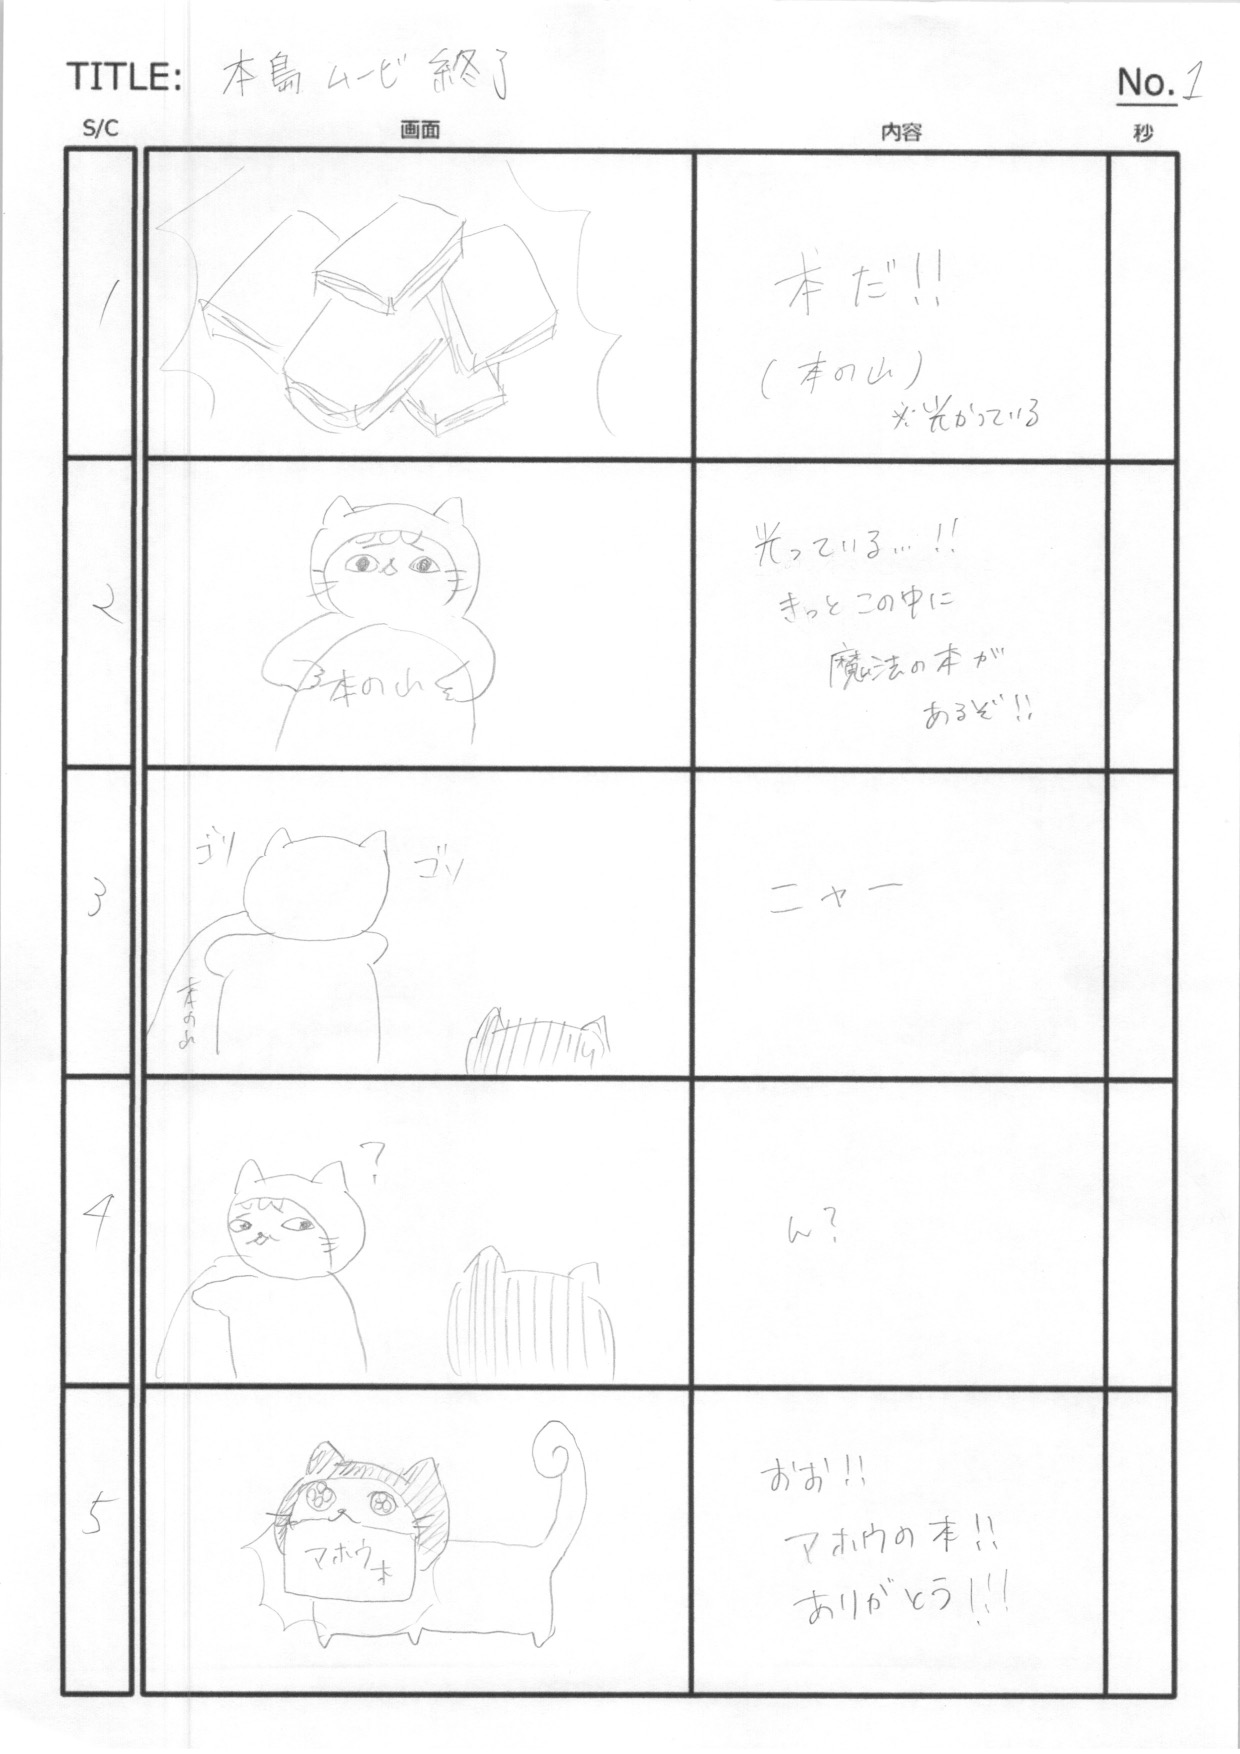 TITLE: 本島 ムービ 終了
No. 1
S/C 画面 内容 秒
1
本だ!!
(本の山)
※光かっている
2
本の山
光っている…!!
きっとこの中に
魔法の本が
あるぞ!!
3
ゴソ
ゴソ
本の山
ニャー
4
?
ん?
5
マホウ
本
おお!!
マホウの本!!
ありがとう!!!